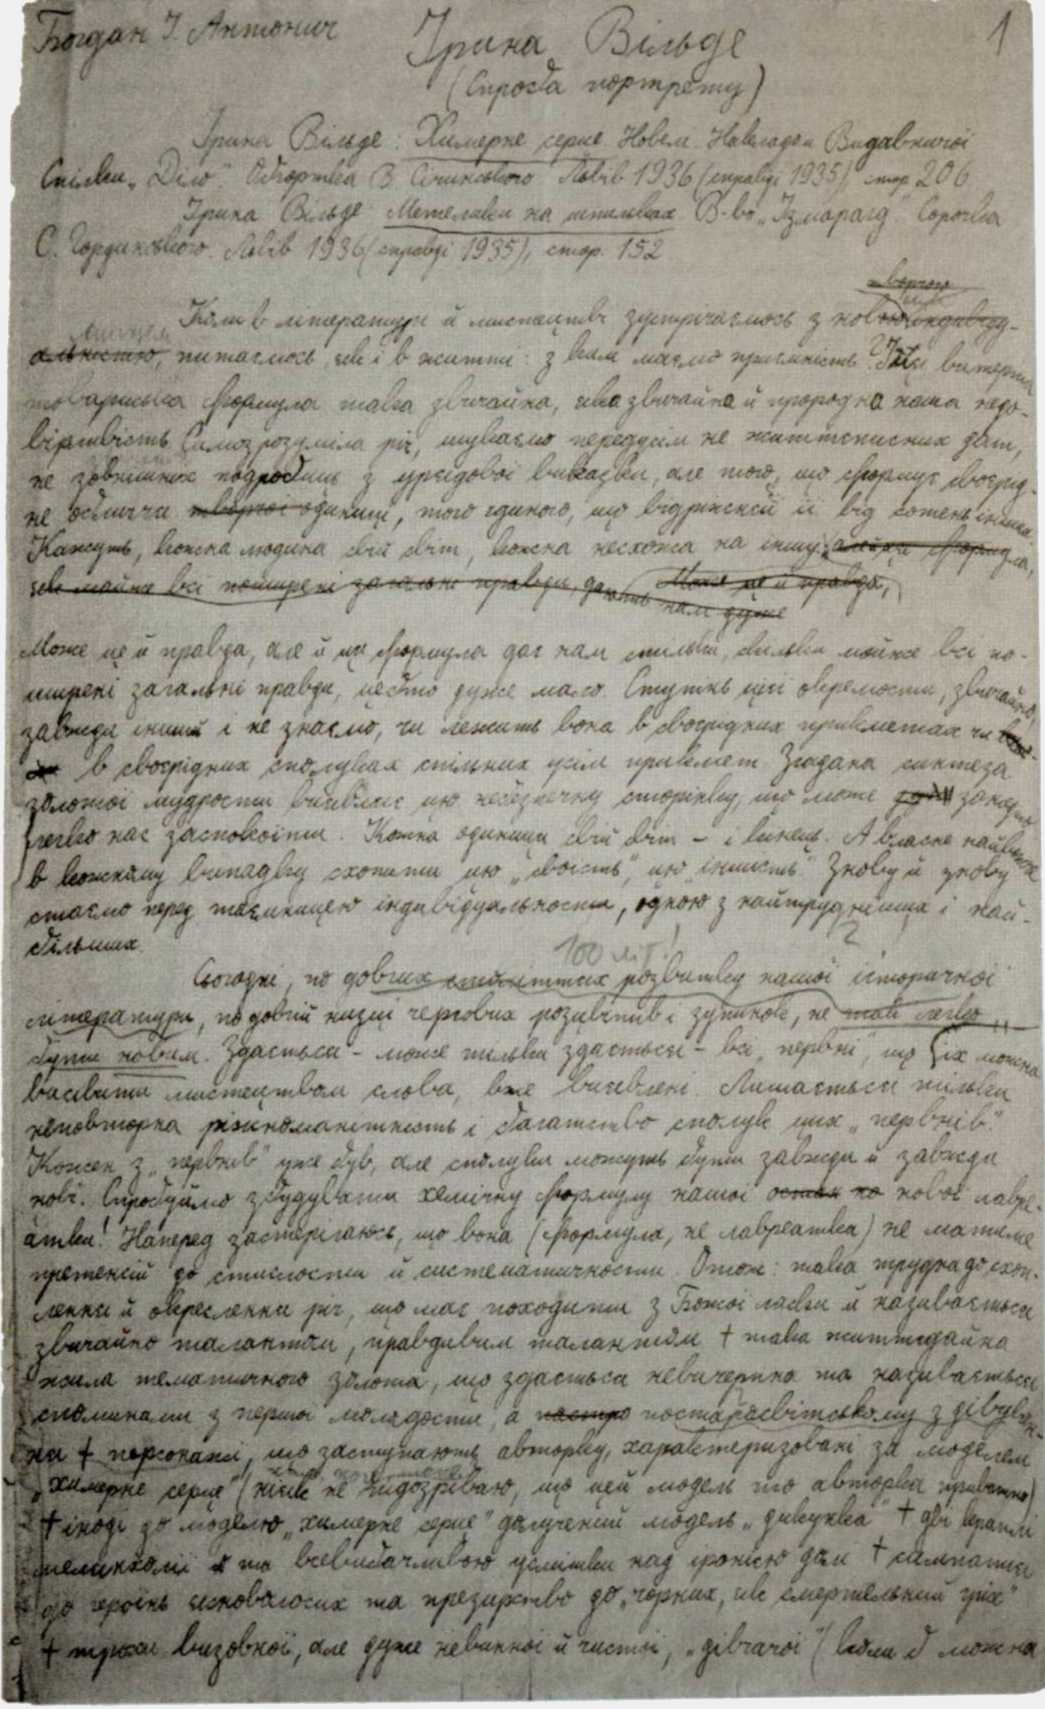 Богдан І. Антонич
Ірина Вільде
1
(Спроба портрету)
Ірина Вільде: Химерне серце. Новели. Накладом Видавничої
Спілки „Діло". Обгортка В. Січинського. Львів 1936 (справді 1935), стор. 206
Ірина Вільде: Метелики на шпильках. В-во „Ізмарагд". Сорочка
С. Гординського. Львів 1936 (справді 1935), стор. 152
творчою
Коли в літературі й мистецтві зустрічаємось з новою індивіду-
альністю, питаємось, як і в житті: з ким маємо приємність? Ця витерта
товариська формула така звичайна, як звичайна й природна наша недо-
вірливість. Самозрозуміла річ, шукаємо передусім не життєписних дат,
не зовнішніх подробиць з урядової виказки, але того, що формує своєрід-
не обличчя творчої одиниці, того єдиного, що відрізняє її від сотень інших.
Кажуть, кожна людина свій світ, кожна несхожа на іншу, але й ця формула,
як майже всі поширені загальні правди, дають нам дуже
Може це й правда,
Може це й правда, але й ця формула дає нам стільки, скільки майже всі по-
ширені загальні правди, цебто дуже мало. Ступінь цієї окремости, звичайно,
завжди інший і не знаємо, чи лежить вона в своєрідних прикметах чи
в своєрідних сполуках спільних усім прикмет. Згадана синтеза
золотої мудрости виявляє цю небезпечну сторінку, що може занадто
легко нас заспокоїти. Кожна одиниця свій світ – і кінець. А власне найважче
в кожному випадку схопити цю „своїсть", цю „іншість". Знову й знову
стаємо перед таємницею індивідуальности, одною з найтрудніших і най-
більших.
100 літ!
?
Сьогодні, по довгих століттях розвитку нашої історичної
літератури, по довгій низці чергових розцвітів і зупинок, не так легко
бути новим. Здається – може тільки здається – всі „первні", що їх можна
висвітити мистецтвом слова, вже виявлені. Лишається тільки
неповторна різноманітність і багатство сполук цих „первнів".
Кожен з „первнів" уже був, але сполуки можуть бути завжди й завжди
нові. Спробуймо збудувати хемічну формулу нашої нової лавре-
атки! Наперед застерігаюсь, що вона (формула, не лавреатка) не матиме
претенсій до стислости й систематичности. Отож: така трудна до схоп-
лення й окреслення річ, що має походити з Божої ласки й називається
звичайно талантом, правдивим талантом + така життєдайна
жила тематичного золота, що здається невичерпна та називається
споминами з першої молодости, а постаросвітському з дівуван-
ня + персонажі, що заступають авторку, характеризовані за моделем
„химерне серце" (ніяк не підозріваю, що цей модель то авторка приватно)
+ іноді до моделю „химерне серце" долучений модель „дикунка" + дві краплі
мелянхолії та всевибачливою усмішки над іронією долі + симпатія
до героїнь ясноволосих та презирство до „чорних, як смертельний гріх"
+ трохи визовної, але дуже невинної й чистої, „дівчачої" (коли б можна